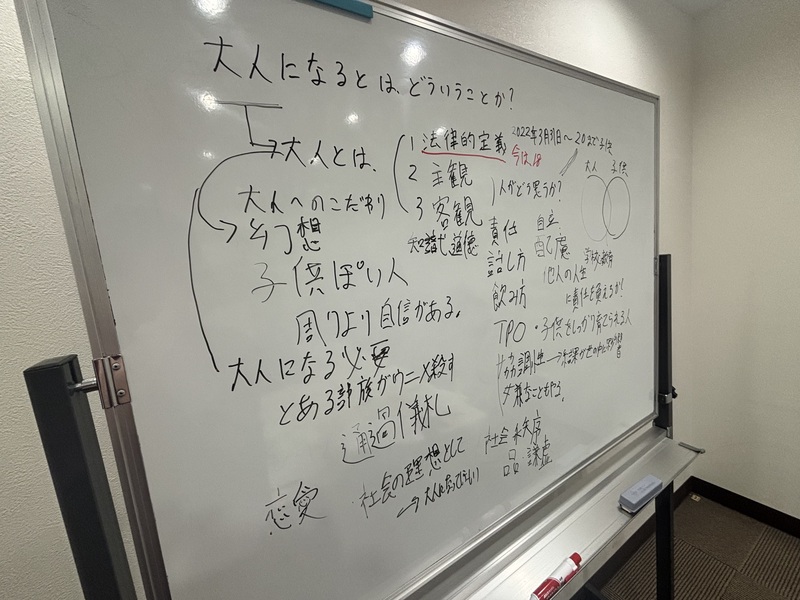 大人になるとは、どういうことか?
大人とは、
大人へのこだわり
幻想
子供ぽい人
周りより自信がある。
大人になる必要
とある部族がワニ殺す
通過儀礼
恋愛
社会の理想として
→大人になってほしい
1 法律的定義
2022年3月31日〜20まで子供
今は18
2 主観
3 客観
人がどう思うか?
知識 道徳
大人 子供
責任
自立
話し方
配慮
学校教育
飲み方
他人の人生
に責任を負えるか?
TPO
・子供をしっかり育てられる人
協調性
嫌なこともやる。
社会 秩序
品 謙虚